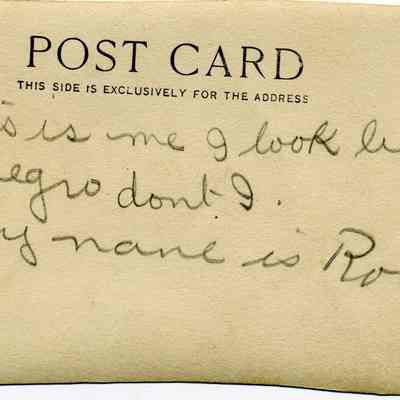 POST CARD
THIS SIDE IS EXCLUSIVELY FOR THE ADDRESS
s is me I look li
egro dont I.
y name is Ro